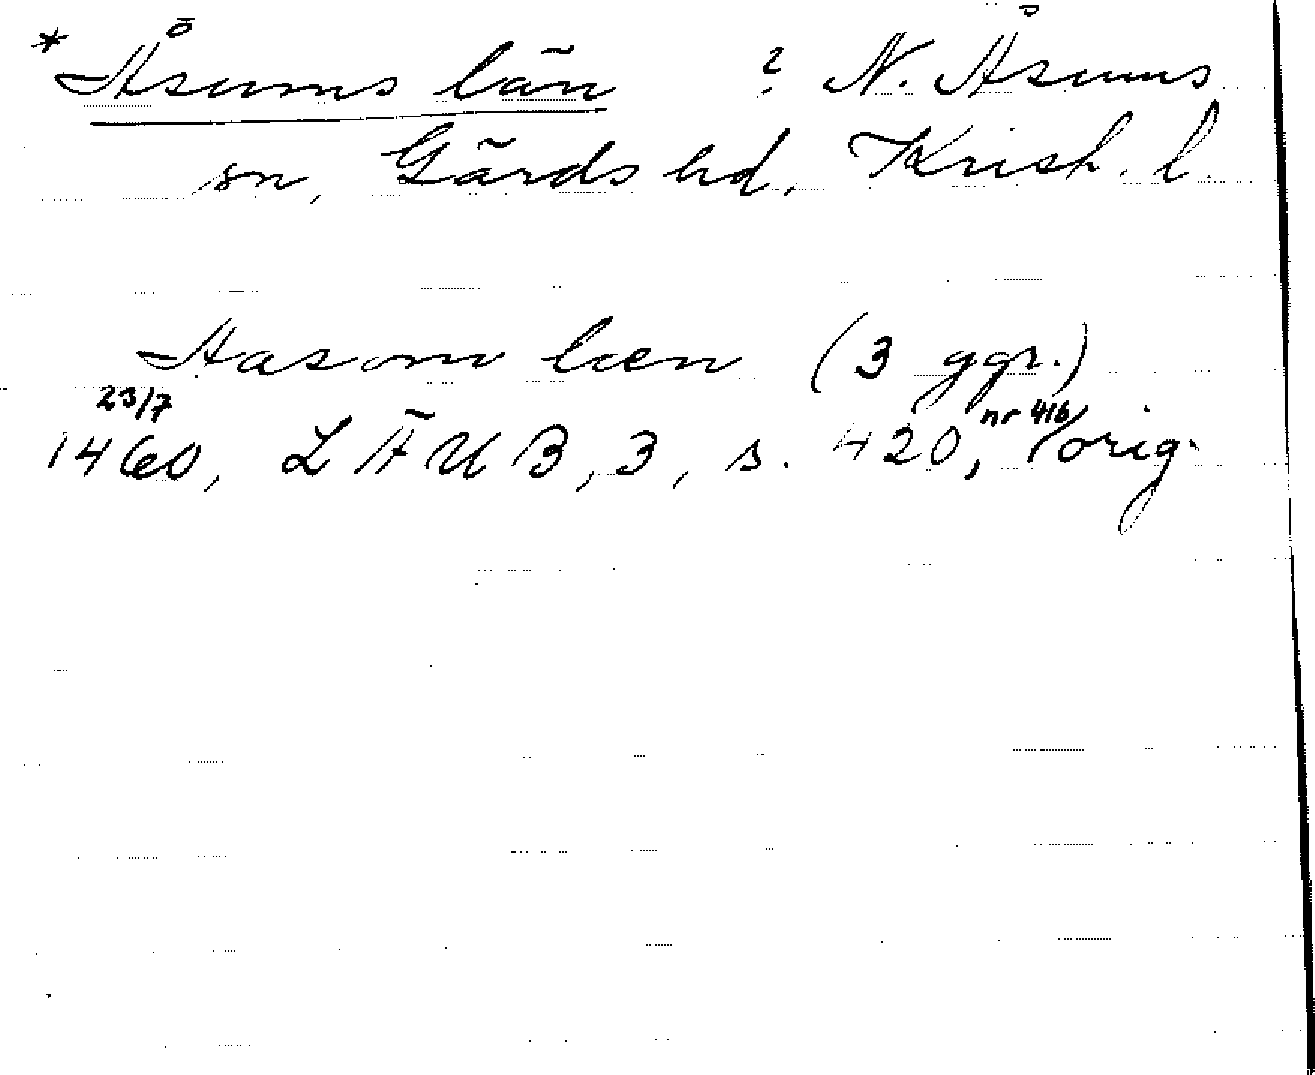 * Åsums län ? N. Åsums
sn, Gärds hd, Krist. l.
Aasom læn (3 ggr.)
23/7 nr 416
1460, LÄUB, 3, s. 420, orig.